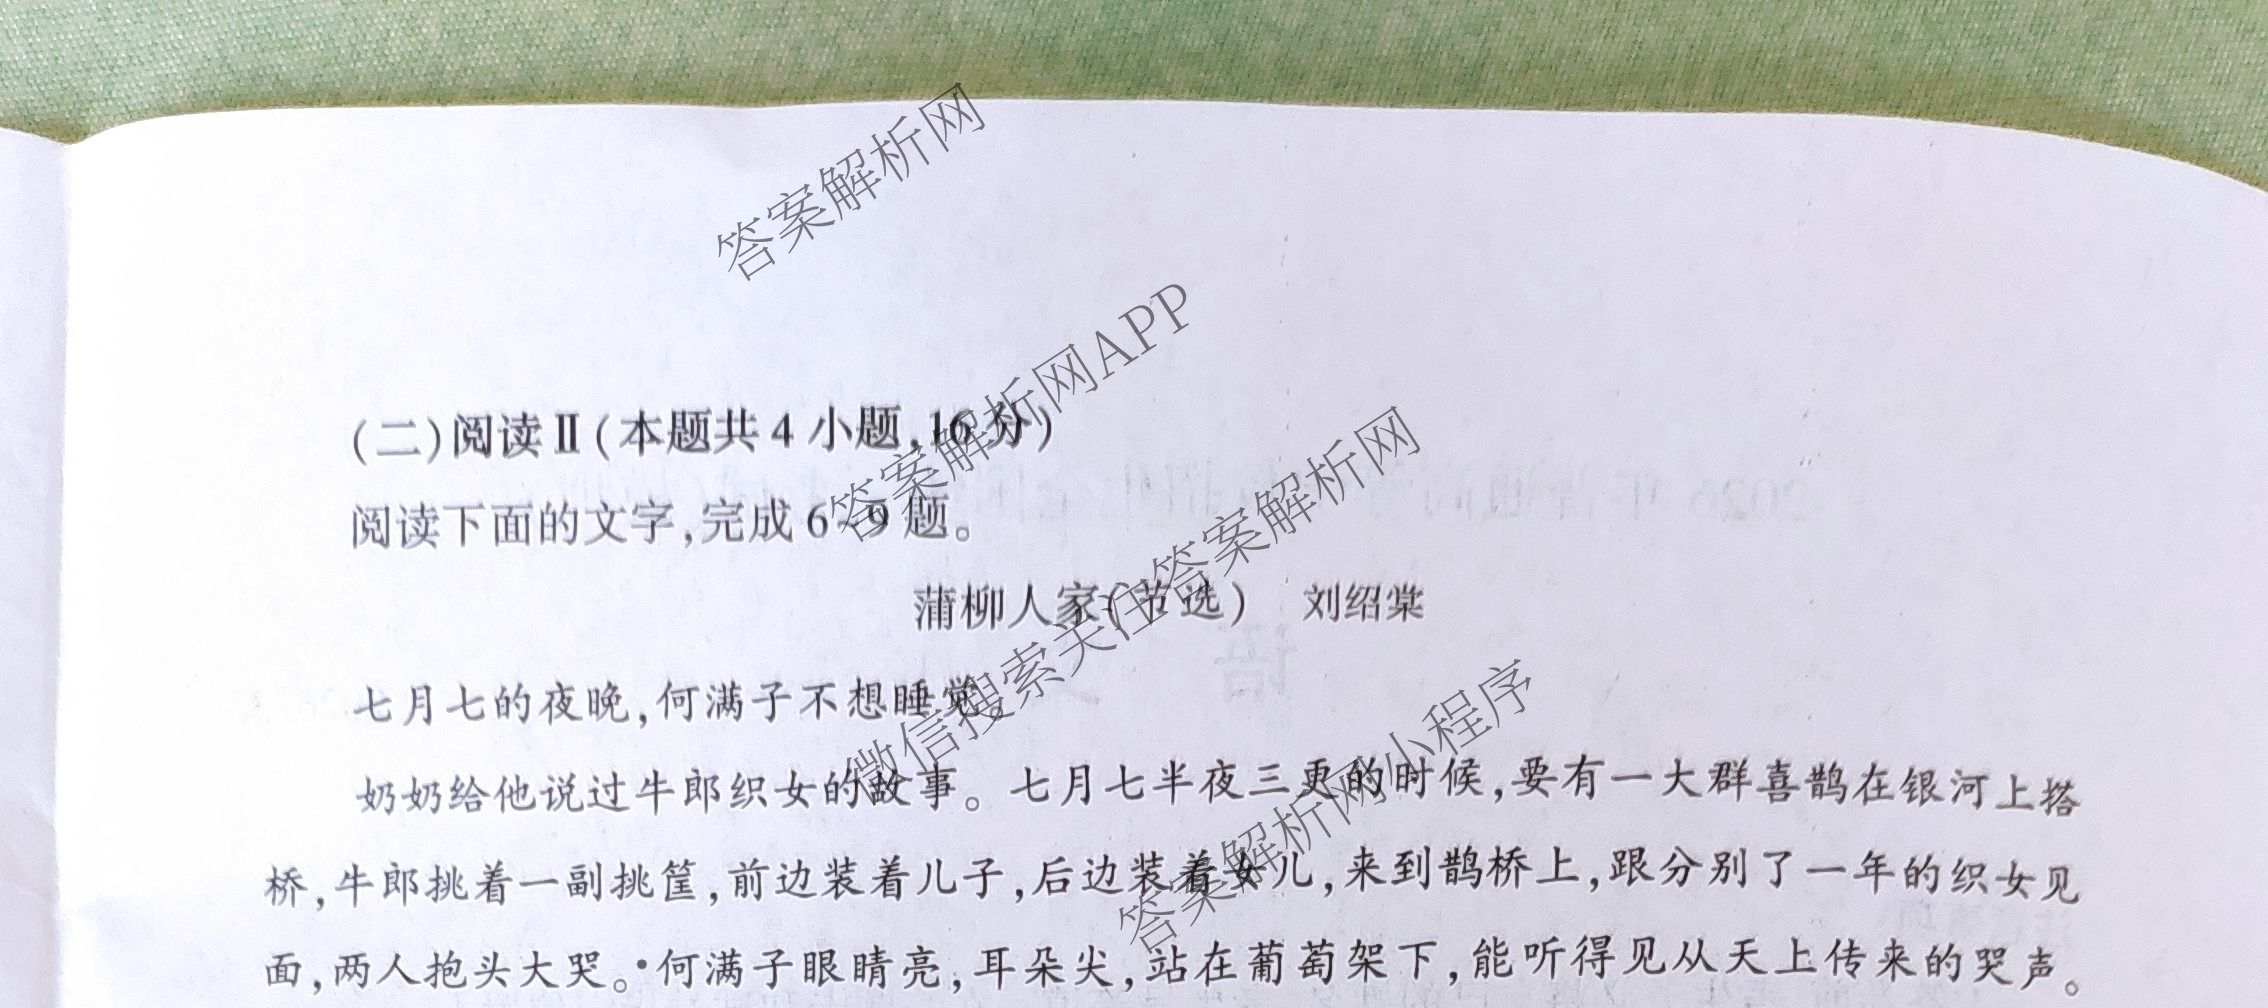 (二)阅读Ⅱ(本题共4小题,16分)
阅读下面的文字,完成6~9题。
蒲柳人家(节选) 刘绍棠
七月七的夜晚,何满子不想睡觉。
奶奶给他说过牛郎织女的故事。七月七半夜三更的时候,要有一大群喜鹊在银河上搭
桥,牛郎挑着一副挑筐,前边装着儿子,后边装着女儿,来到鹊桥上,跟分别了一年的织女见
面,两人抱头大哭。何满子眼睛亮,耳朵尖,站在葡萄架下,能听得见从天上传来的哭声。
答案解析网
答案解析网APP
微信搜索关注答案解析网
答案解析网小程序